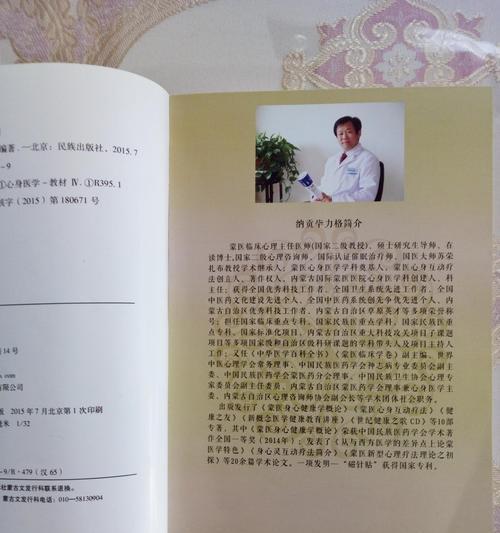 编著. —北京: 民族出版社, 2015.7
-9
①心身医学-教材 Ⅳ. ①R395.1
核字 (2015) 第 180671 号
14号
有限公司
版 2015年7月北京第1次印刷
毫米 1/32
-9/R·479 (汉65)
社蒙古文发行科联系退换。
蒙古文发行科电话: 010-58130904
纳贡毕力格简介
蒙医临床心理主任医师(国家二级教授)、硕士研究生导师、在
读博士,国家二级心理咨询师、国际认证催眠治疗师、国医大师苏荣
扎布教授学术继承人; 蒙医心身医学学科奠基人、蒙医心身互动疗
法创立人、著作权人、内蒙古国际蒙医医院心身医学科创建人、科
主任; 获得全国优秀科技工作者、全国卫生系统先进工作者、全国
中医药文化建设先进个人、全国中医药系统创先争优先进个人、内
蒙古自治区优秀科技工作者、内蒙古自治区草原英才等多项荣誉称
号; 担任国家临床重点专科、国家民族医重点学科、国家民族医重
点专科、国家标准化项目、内蒙古自治区重大科技攻关项目子课题
项目等多项国家级和自治区级科研课题的学科带头人及项目主持人
工作; 又任《中华医学百科全书》《蒙医临床学卷》副主编、世界
中医心理学会常务理事、中国民族医药学会神志病专业委员会副主
委、中国民族医药学会蒙医药分会理事、中国民族卫生协会心理专
家委员会副主任委员、内蒙古自治区蒙医药学会理事兼心身医学主
委、内蒙古自治区心理咨询师协会副会长等学术团体社会职务。
出版发行了《蒙医身心健康学概论》《蒙医心身互动疗法》《健
康之友》《新概念医学健康教育讲座》《世纪健康之歌CD》等10部
专著。其中《蒙医身心健康学概论》荣获中国民族医药学会学术著
作全国一等奖 (2014年); 发表了《从与西方医学的差异点上论蒙
医学特色》《身心灵互动疗法简介》《蒙医新型心理疗法理论之初
探》等20余篇学术论文。一项发明—“磁针贴”获得国家专利。